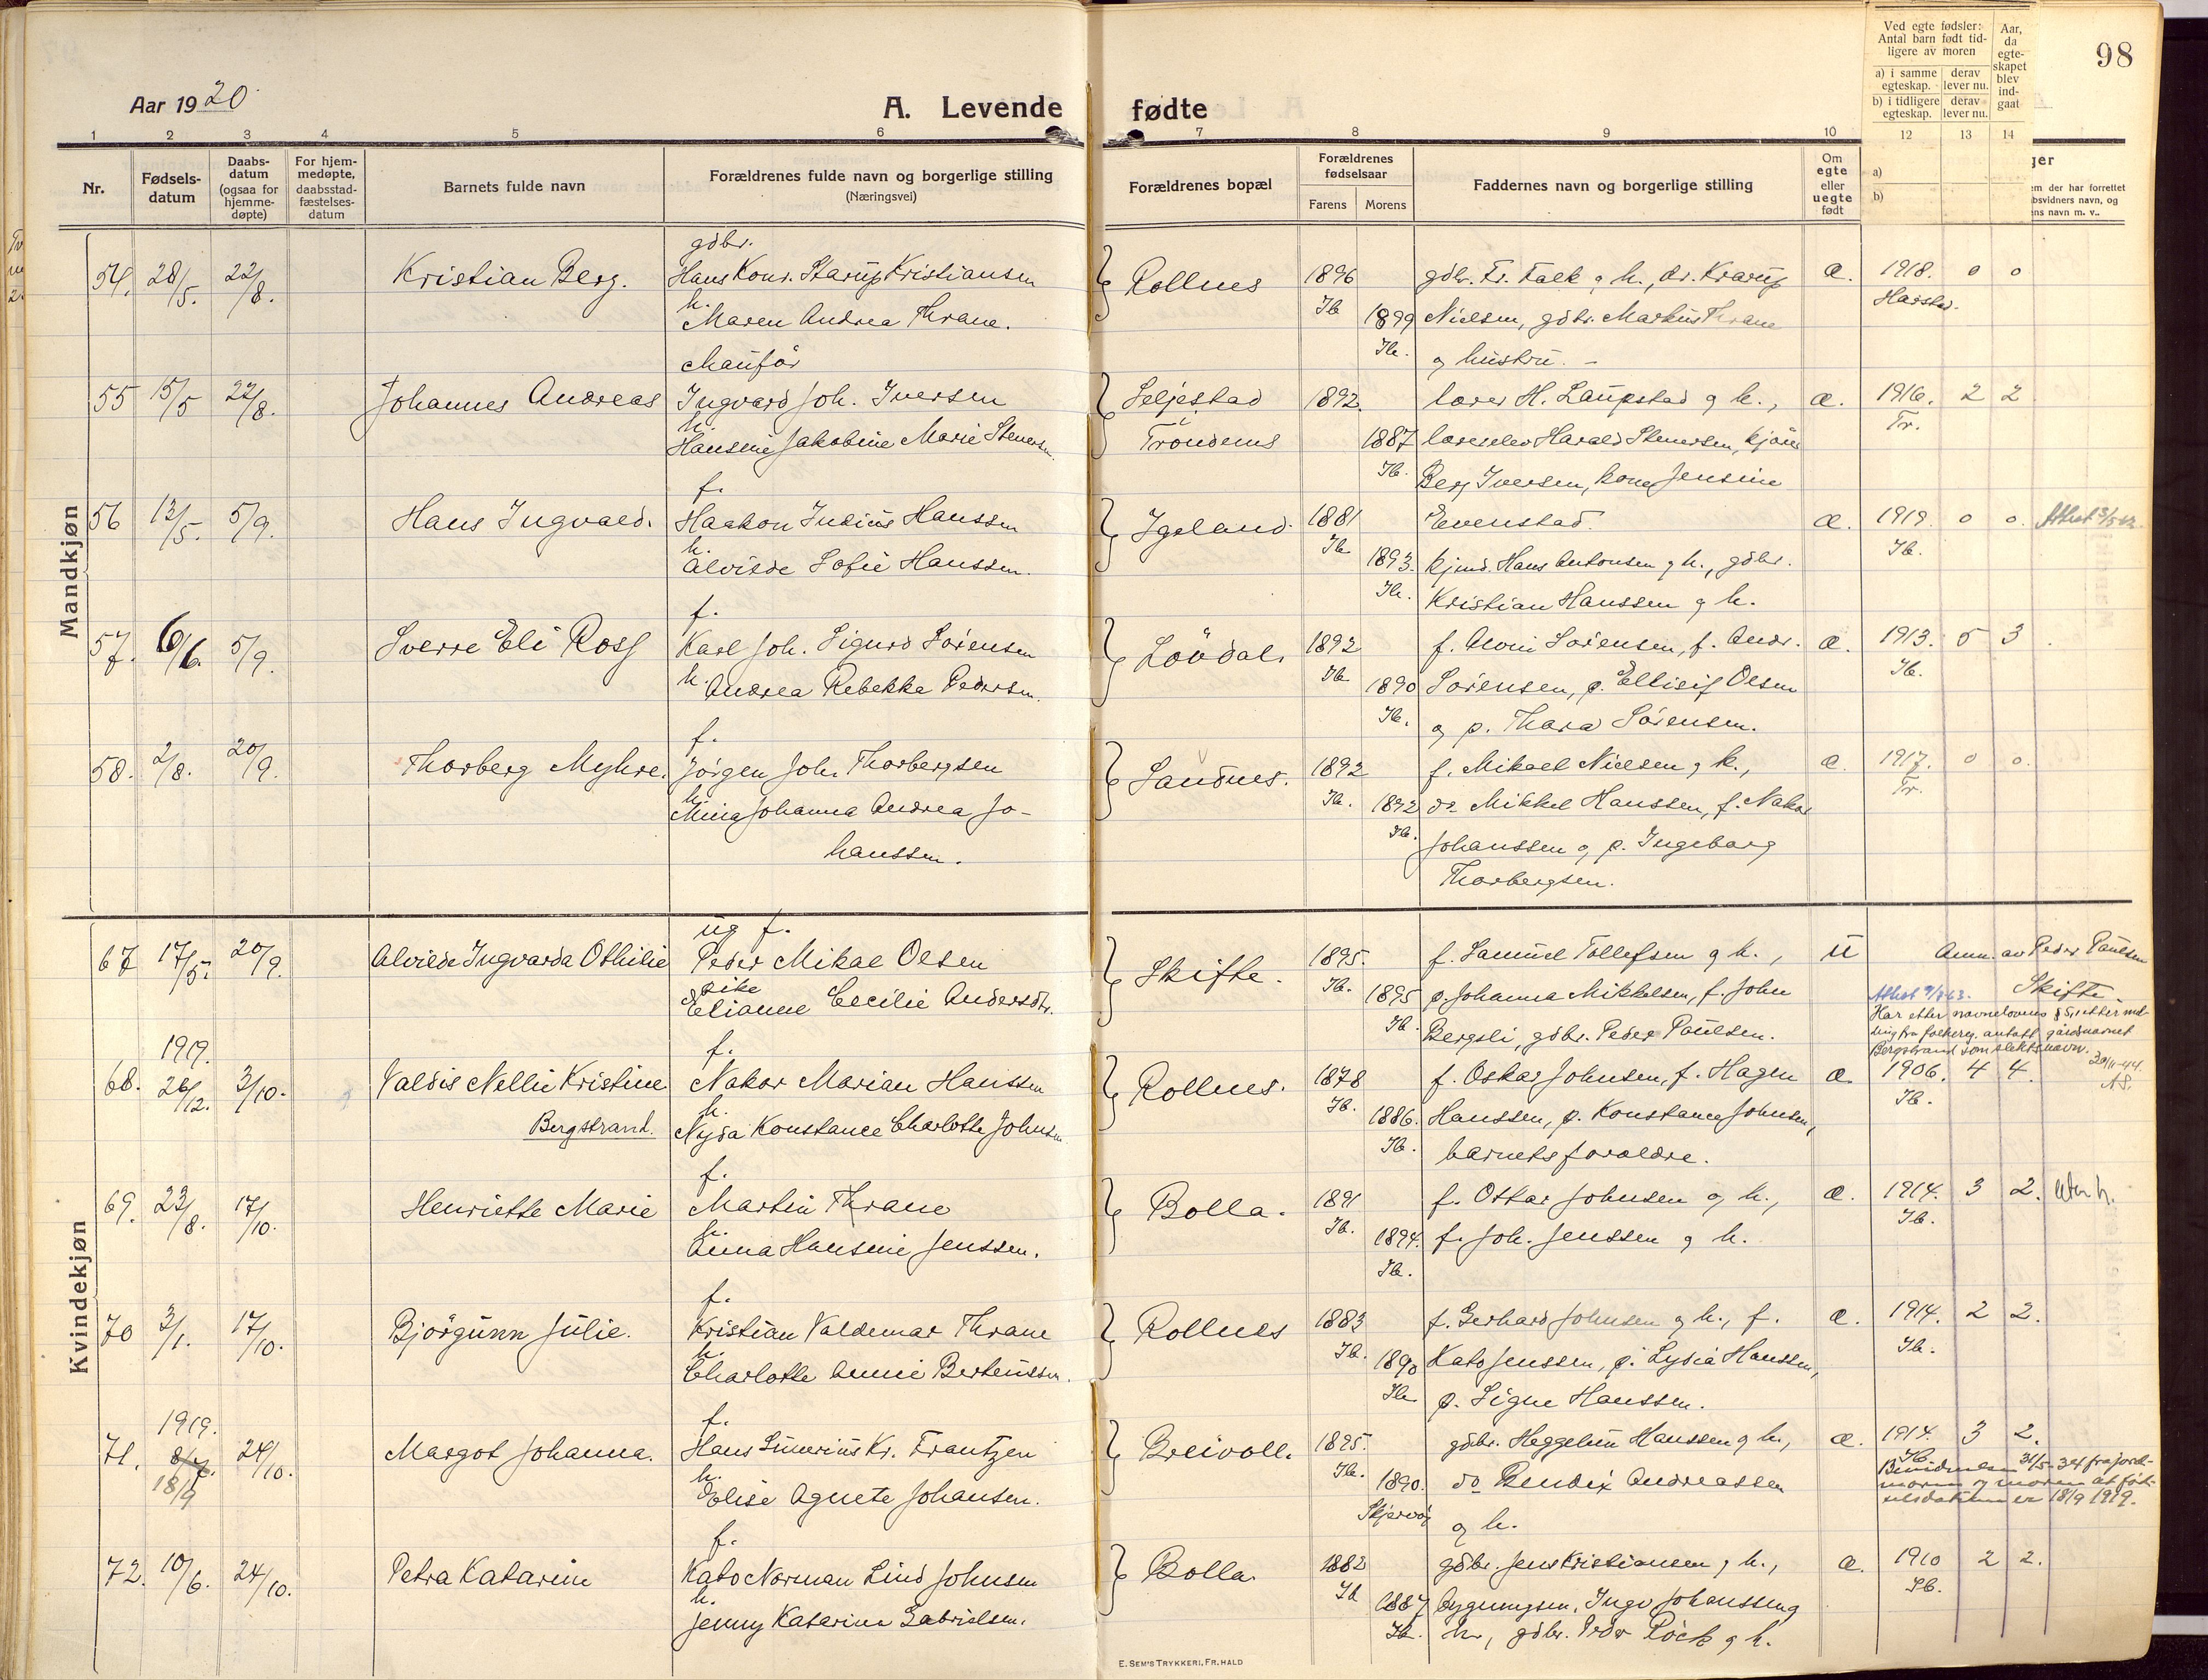 98
Aar 1920
A. Levende fødte
1 2 3 4 5 6 7 8 9 10
Nr.
Fødsels-
datum
Daabs-
datum
(ogsaa for
hjemme-
døpte)
For hjem-
medøpte,
daabsstad-
fæstelses-
datum
Barnets fulde navn
Forældrenes fulde navn og borgerlige stilling
(Næringsvei)
Forældrenes bopæl
Forældrenes
fødselsaar
Farens Morens
Faddernes navn og borgerlige stilling
Om
egte
eller
uegte
født
Ved egte fødsler:
Antal barn født tid-
ligere av moren
a) i samme
egteskap.
derav
lever nu.
b) i tidligere
egteskap.
derav
lever nu.
Aar,
da
egte-
skapet
blev
ind-
gaat
12 13 14
a)
b)
ger
em der har forrettet
bsvidners navn, og
ens navn m. v..
Mandkjøn
54. 28/5. 22/8. Kristian Berg.
gdbr.
Hans Konr. Starup Kristiansen
h.
Maren Andrea Thrane.
Rollnes 1896 Ib 1899 Ib.
gdbr. Fr. Falk og h., dr. Krarup
Nielsen, gdbr. Markus Thrane
og hustru. -
æ. 1918. 0 0
Harstad.
55 15/5 22/8. Johannes Andreas
Ingvard Joh. Iversen
h.
Hansine Jakobine Marie Stenersen.
Seljestad
i
Trondenes
1892. 1887 Ib.
lærer H. Laupstad og h.,
lærerelev Harald Stenersen,
Berg Iversen, kone Jensine
Evenstad.
æ. 1916. 2 2
Tr.
56 13/5. 5/9. Hans Ingvald.
f.
Haakon Julius Hanssen
h.
Alvilde Sofie Hanssen.
Igeland. 1881 Ib 1893. Ib.
kjmd. Hans Antonsen og h., gdbr.
Kristian Hanssen og h.
æ. 1919. 0 0.
Ib.
57. 6/6. 5/9. Sverre Eli Ross
f.
Karl Joh. Sigurd Sörensen
h.
Andrea Rebekka Pedersen.
Lövdal. 1892 Ib 1890 Ib.
f. Arvin Sörensen, f. Andr.
Sörensen, p. Ellisif Olsen
og p. Thora Sörensen.
æ. 1913. 5 3
Ib.
58. 2/8. 20/9. Thorberg Myhre.
f.
Jörgen Joh. Thorbergsen
h.
Mina Johanna Andrea Jo-
hanssen.
Sandnes. 1892 Ib. 1892 Ib.
f. Mikael Nielsen og h.,
do Mikkel Hanssen, f. Nakor
Johanssen og p. Ingeborg
Thorbergsen.
æ. 1917. 0 0.
Tr.
Kvindekjøn
67 17/5. 20/9. Alvilde Ingvarda Othilie
ug f.
Peder Mikal Olsen
pike
Elianne Cecilie Andersdtr.
Skifte. 1895. Ib. 1895 Ib.
f. Samuel Tollefsen og h.,
p. Johanna Mikkelsen, f. John
Bergsli, gdbr. Peder Paulsen.
u Anm. av Peder Paulsen
Skifte
Har etter navnelovens § 5, etter mel-
ding fra folkereg. antatt gårdsnavnet
Bergstrand som slektsnavn.
30/11-44.
1919.
68. 26/12. 3/10. Valdis Nellie Kristine
Bergstrand.
f.
Nakor Marian Hanssen
h.
Nyda Konstance Charlotte Johnsen
Rollnes. 1878 Ib. 1886. Ib.
f. Oskar Johnsen, f. Hagen
Hanssen, p. Konstance Johnsen,
barnets forældre.
æ. 1906. 4 4.
Ib.
69. 23/8. 17/10. Henriette Marie
f.
Martin Thrane
h.
Lina Hansine Jenssen.
Bolla. 1891 Ib. 1894. Ib.
f. Ottar Johnsen og h.,
f. Joh. Jenssen og h.
æ. 1914. 3 2.
Ib.
70 3/1. 17/10. Bjørgunn Julie.
f.
Kristian Valdemar Thrane
h.
Charlotte Annie Bertenssen.
Rollnes 1883 Ib. 1890 Ib
f. Gerhard Johnsen og h., f.
Kato Jenssen, p. Lydia Hanssen,
p. Signe Hanssen.
æ. 1914. 2 2.
Ib.
1919.
71. 8/7. 24/10. Margot Johanna.
18/9
f.
Hans Severius Kr. Frantzen
h.
Elise Agnete Johansen.
Breivoll. 1895. Ib. 1890. Skjervöy
gdbr. Heggelun Hanssen og h.,
do Bendix Andreassen
og h.
æ. 1914. 3 2.
Ib.
31/5-34 fra jord-
moren og moren at föd-
selsdatumen er 18/9 1919.
72. 10/6. 24/10. Petra Katarine
f.
Kato Norman Lind Johnsen
h.
Jenny Katarina Gabrielsen.
Bolla. 1882 Ib 1887 Ib.
gdbr. Jens Kristiansen og h.,
bygningsm. Ingv Johanssen og
h., gdbr. Peder Röck og h.
æ. 1910 2 2.
Ib.
E. SEM'S TRYKKERI, FR. HALD